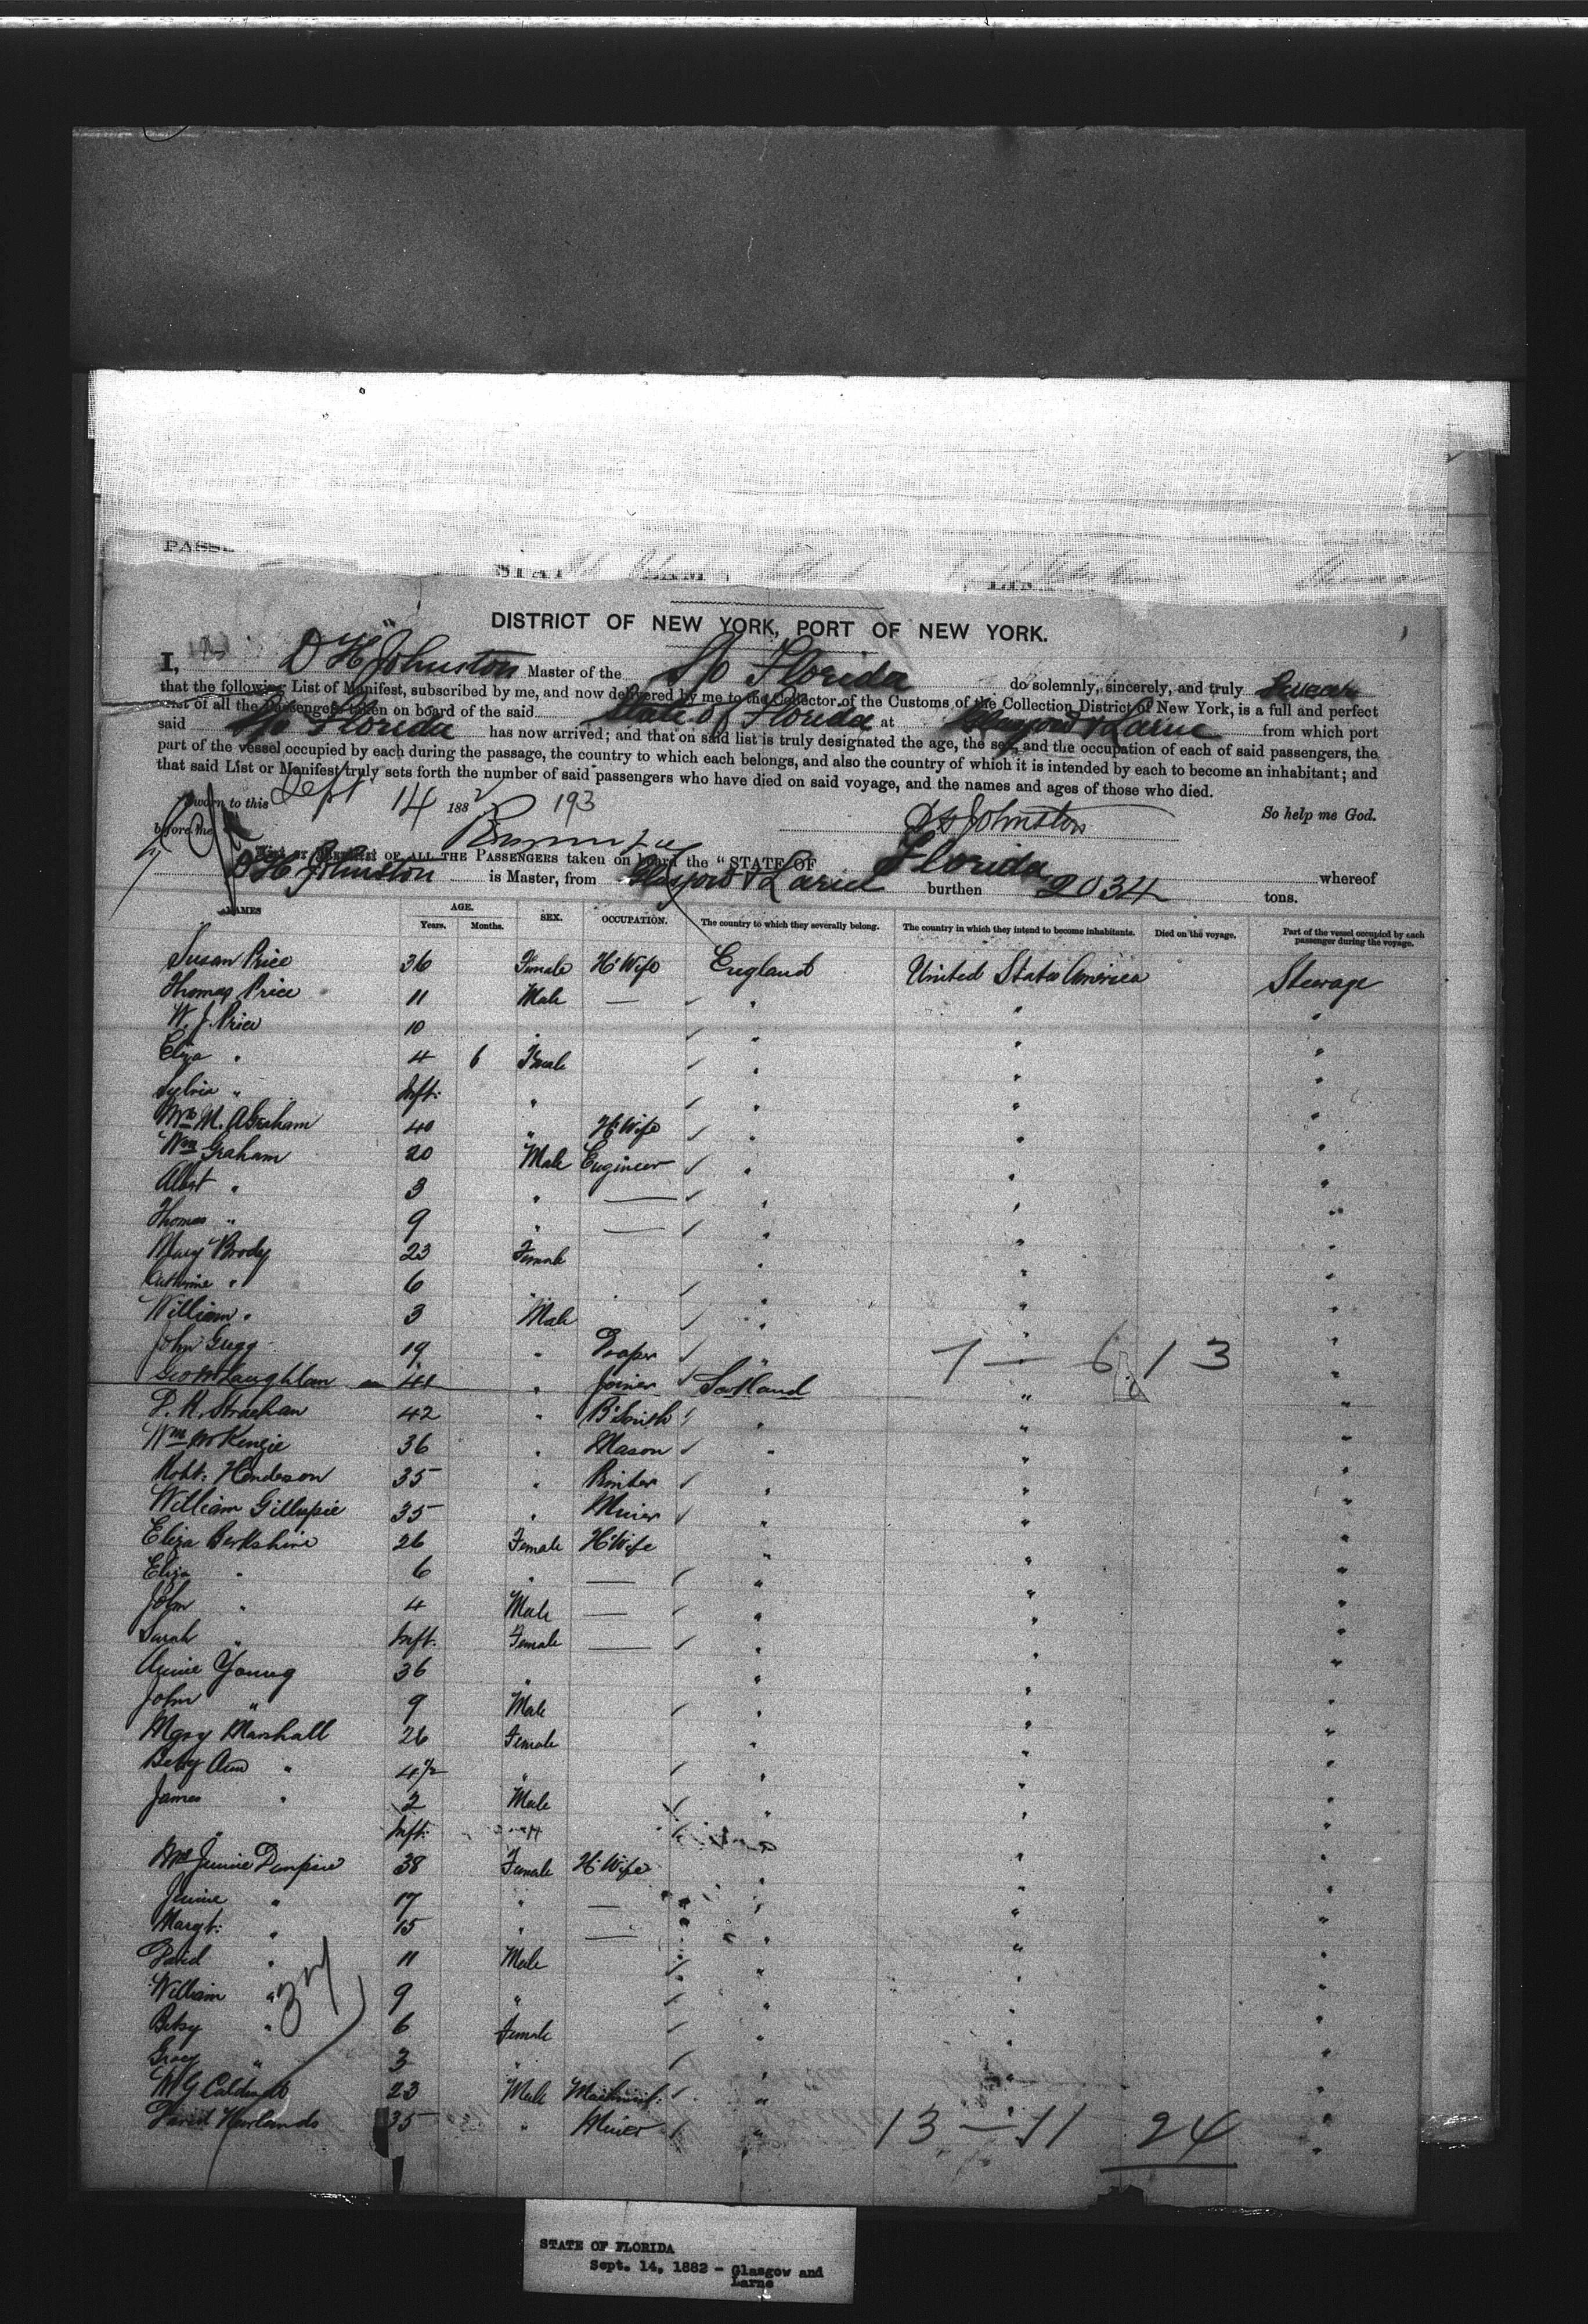 PASSE
DISTRICT OF NEW YORK, PORT OF NEW YORK.
I, D H Johnston Master of the S/o Florida do solemnly, sincerely, and truly Swear
that the following List of Manifest, subscribed by me, and now delivered by me to the Collector of the Customs of the Collection District of New York, is a full and perfect
list of all the Passengers taken on board of the said State of Florida at Glasgow & Larne from which port
said S/o Florida has now arrived; and that on said list is truly designated the age, the sex, and the occupation of each of said passengers, the
part of the vessel occupied by each during the passage, the country to which each belongs, and also the country of which it is intended by each to become an inhabitant; and
that said List or Manifest truly sets forth the number of said passengers who have died on said voyage, and the names and ages of those who died.
Sworn to this Sept 14 1882 193 So help me God.
before me DH Johnston
List or Manifest OF ALL THE PASSENGERS taken on board the "STATE OF Florida whereof
D H Johnston is Master, from Glasgow & Larne burthen 2034 tons.
NAMES AGE. Years. Months. SEX. OCCUPATION. The country to which they severally belong. The country in which they intend to become inhabitants. Died on the voyage. Part of the vessel occupied by each passenger during the voyage.
Susan Price 36 Female H'Wife England United States America Steerage
Thomas Price 11 Male — " " "
W. J. Price 10 " " " "
Eliza " 4 6 Female " " "
Sylvia " Inft. " " " "
Mrs M. Abraham 40 " H'Wife " " "
Wm Graham 20 Male Engineer " " "
Albert " 3 " — " " "
Thomas " 9 " — " " "
Mary Brody 23 Female " " "
Catherine " 6 " " " "
William " 3 Male " " "
John Gregg 19 " Draper " " " 7 — 6 13
Geo McLaughlan 41 " Joiner Scotland " "
D. R. Strachan 42 " B'Smith " " "
Wm McKenzie 36 " Mason " " "
Robt. Henderson 35 " Printer " " "
William Gillespie 35 " Miner " " "
Eliza Berkshire 26 Female H'Wife " " "
Eliza " 6 " — " " "
John " 4 Male — " " "
Sarah " Inft. Female — " " "
Annie Young 36 " " " "
John " 9 Male " " "
Mary Marshall 26 Female " " "
Betsy Ann " 4½ " " " "
James " 2 Male " " "
" Inft. " "
Mrs Jennie Dempsie 38 Female H'Wife " " "
Jennie " 17 " — " " "
Margt. " 15 " — " " "
David " 11 Male " " "
William " 9 " " " "
Betsy " 6 Female " " "
Gracy " 3 " " " "
37
W G Caldwell 23 Male Machinist. " " "
David Newlands 35 " Miner " 13 — 11 24 "
STATE OF FLORIDA
Sept. 14, 1882 - Glasgow and
Larne